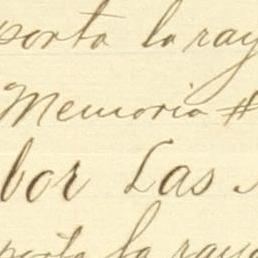 porta la ray
Memoria #
bor Las
porta la raya